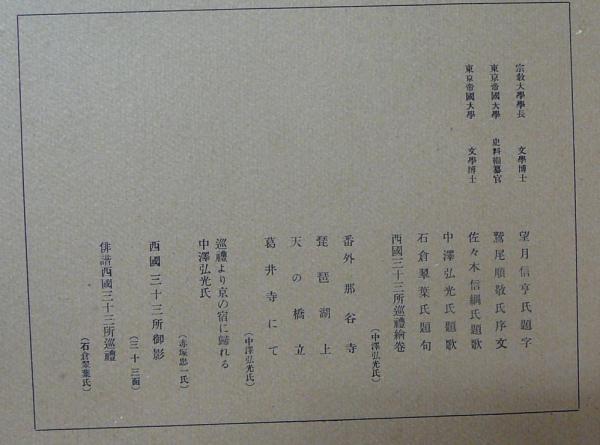 宗敎大學學長 文學博士 望月信亨氏題字
東京帝國大學 史料編纂官 鷲尾順敬氏序文
東京帝國大學 文學博士 佐々木信綱氏題歌
中澤弘光氏題歌
石倉翠葉氏題句
西國三十三所巡禮繪卷
(中澤弘光氏)
番外那谷寺
琵琶湖上
天の橋立
葛井寺にて
(中澤弘光氏)
巡禮より京の宿に歸れる
中澤弘光氏
(赤塚忠一氏)
西國三十三所御影
(三十三面)
俳諧西國三十三所巡禮
(石倉翠葉氏)